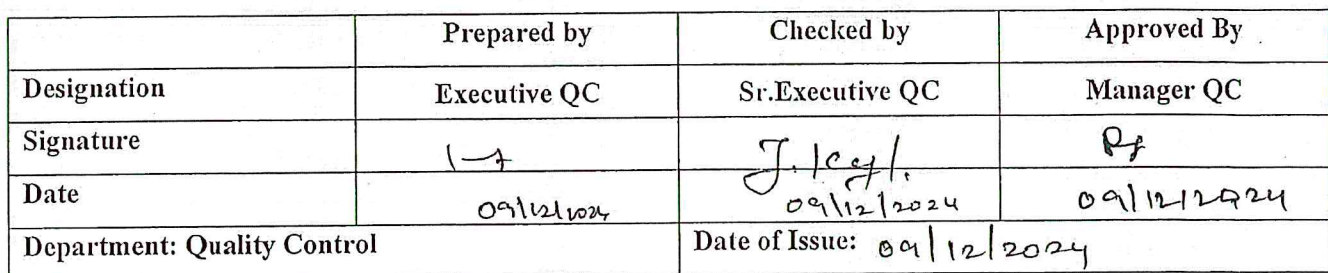 Prepared by Checked by Approved By
Designation Executive QC Sr.Executive QC Manager QC
Signature
Date 09/12/2024 09/12/2024 09/12/2024
Department: Quality Control Date of Issue: 09/12/2024